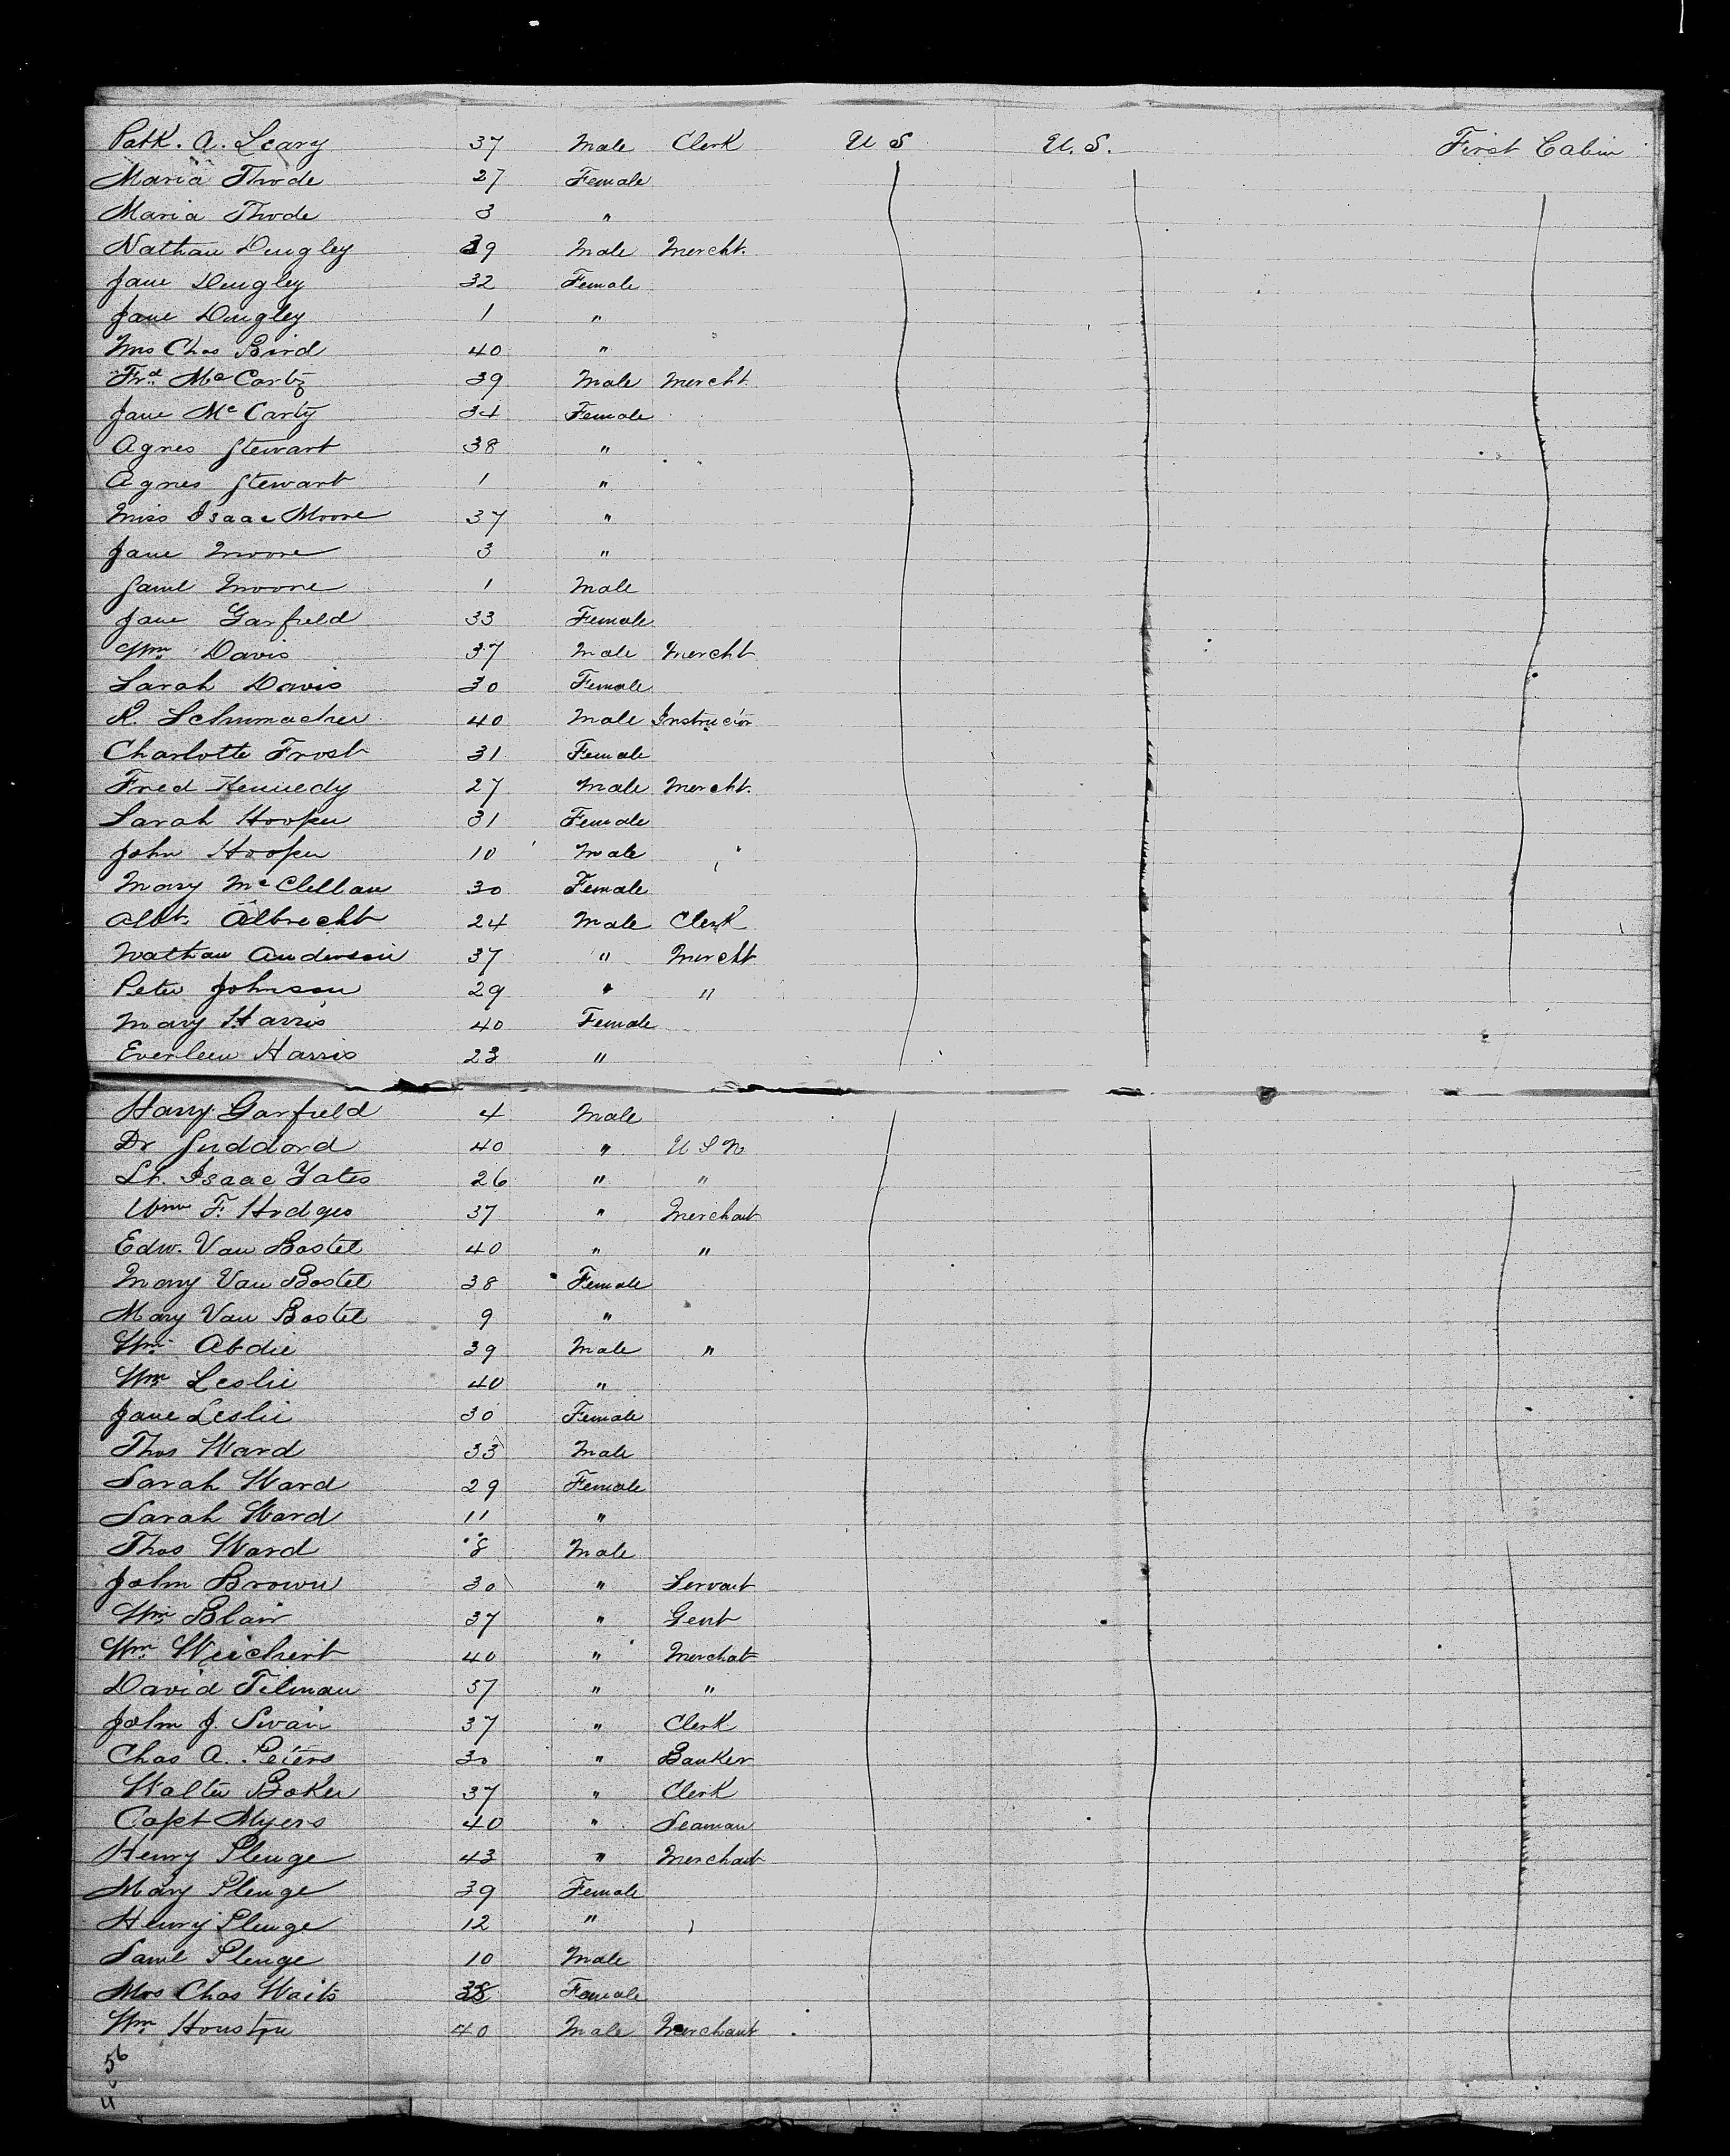 Patk. A. Leary 37 Male Clerk U S U. S. First Cabin
Maria Thode 27 Female
Maria Thode 3 "
Nathan Dingley 39 Male Mercht.
Jane Dingley 32 Female
Jane Dingley 1 "
Mrs Chas Bird 40 "
Frd. McCarty 39 Male Mercht
Jane McCarty 34 Female
Agnes Stewart 38 "
Agnes Stewart 1 "
Miss Isaac Moore 37 "
Jane Moore 3 "
Saml Moore 1 Male
Jane Garfield 33 Female
Wm Davis 37 Male Mercht
Sarah Davis 30 Female
R. Schumacher 40 Male Instructor
Charlotte Frost 31 Female
Fred Kennedy 27 Male Mercht.
Sarah Hooper 31 Female
John Hooper 10 Male
Mary McClellan 30 Female
Albt. Albrecht 24 Male Clerk
Nathan Anderson 37 " Mercht
Peter Johnson 29 " "
Mary Harris 40 Female
Everleen Harris 23 "
Harry Garfield 4 Male
Dr Suddard 40 " U S N
Lt. Isaac Yates 26 " "
Wm F. Hodges 37 " Merchant
Edw. Van Bostel 40 " "
Mary Van Bostel 38 Female
Mary Van Bostel 9 "
Wm Abdie 39 Male "
Wm Leslie 40 "
Jane Leslie 30 Female
Thos Ward 33 Male
Sarah Ward 29 Female
Sarah Ward 11 "
Thos Ward 8 Male
John Brown 30 " Servant
Wm Blair 37 " Gent
Wm Weichert 40 " Merchat
David Tilman 37 " "
John J. Swain 37 " Clerk
Chas A. Peters 30 " Banker
Walter Baker 37 " Clerk
Capt Myers 40 " Seaman
Henry Plenge 43 " Merchant
Mary Plenge 39 Female
Henry Plenge 12 "
Saml Plenge 10 Male
Mrs Chas Waits 38 Female
Wm Houston 40 Male Merchant
56